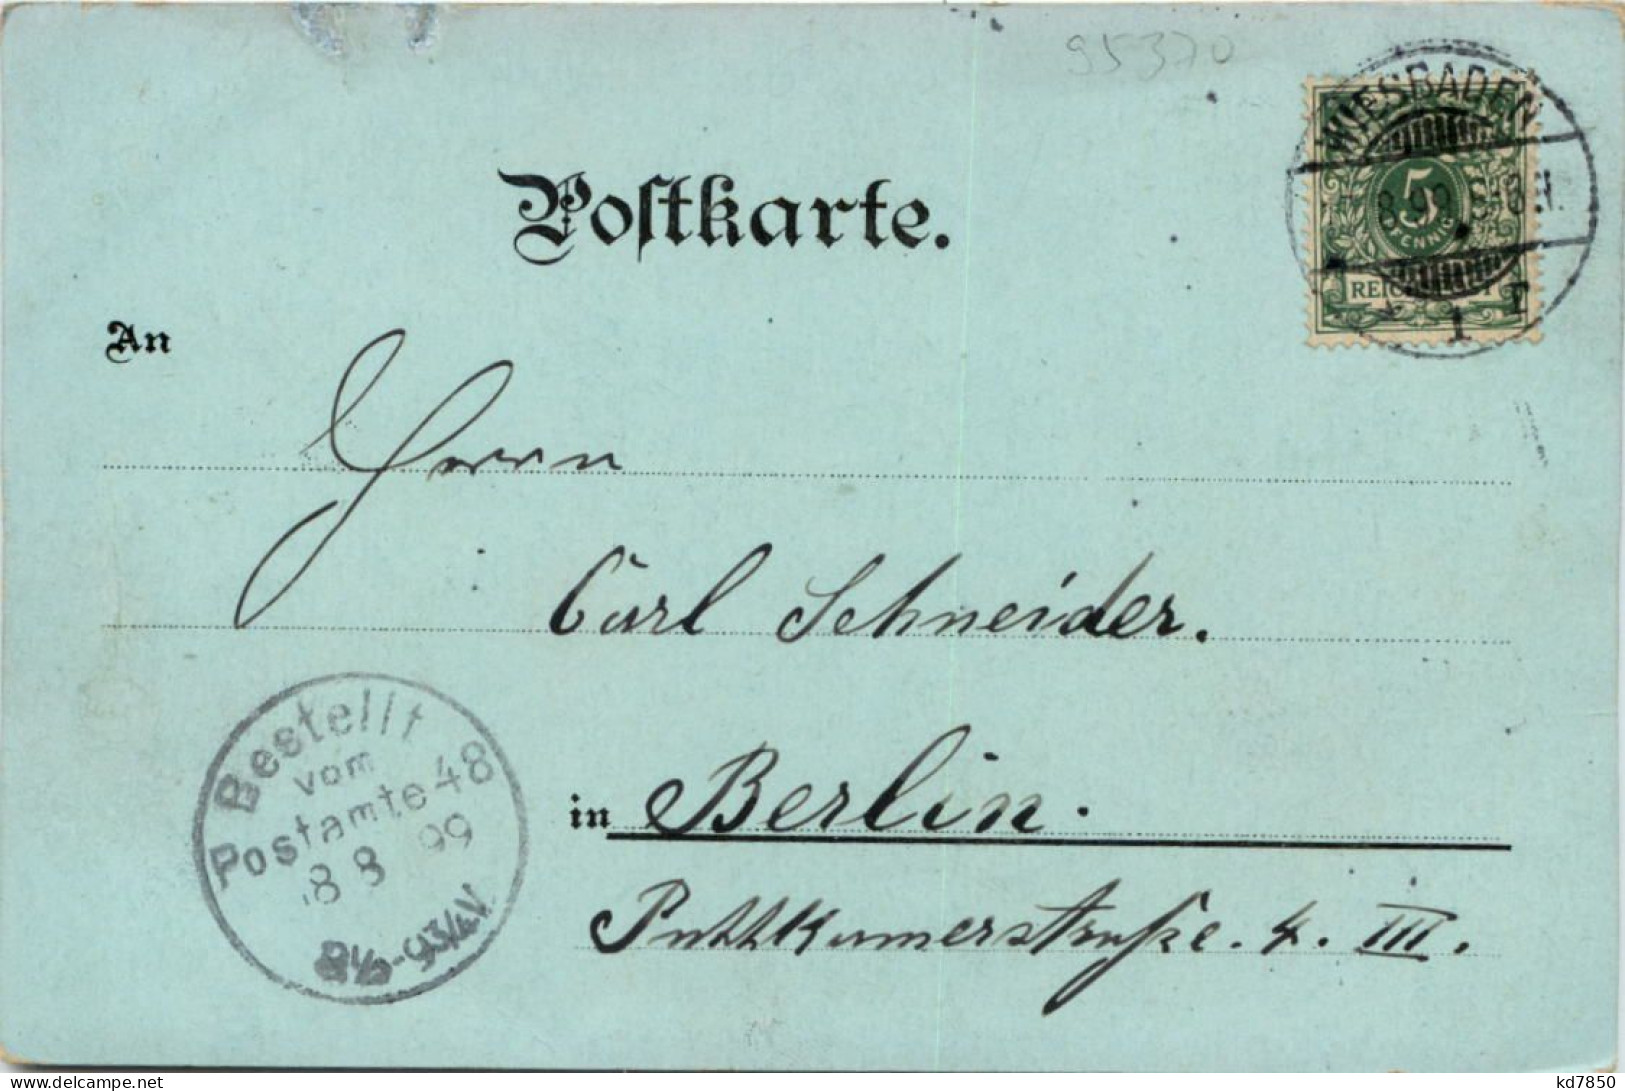 95370
WIESBADEN
8.99. 5-6 N.
5
PFENNIG
1 r
Postkarte.
An
Herrn
Carl Schneider.
in Berlin.
Puttkamerstraße. 4. III.
Bestellt
vom
Postamte 48
8 8 99
8½-9¾V.
www.delcampe.net
kd7850